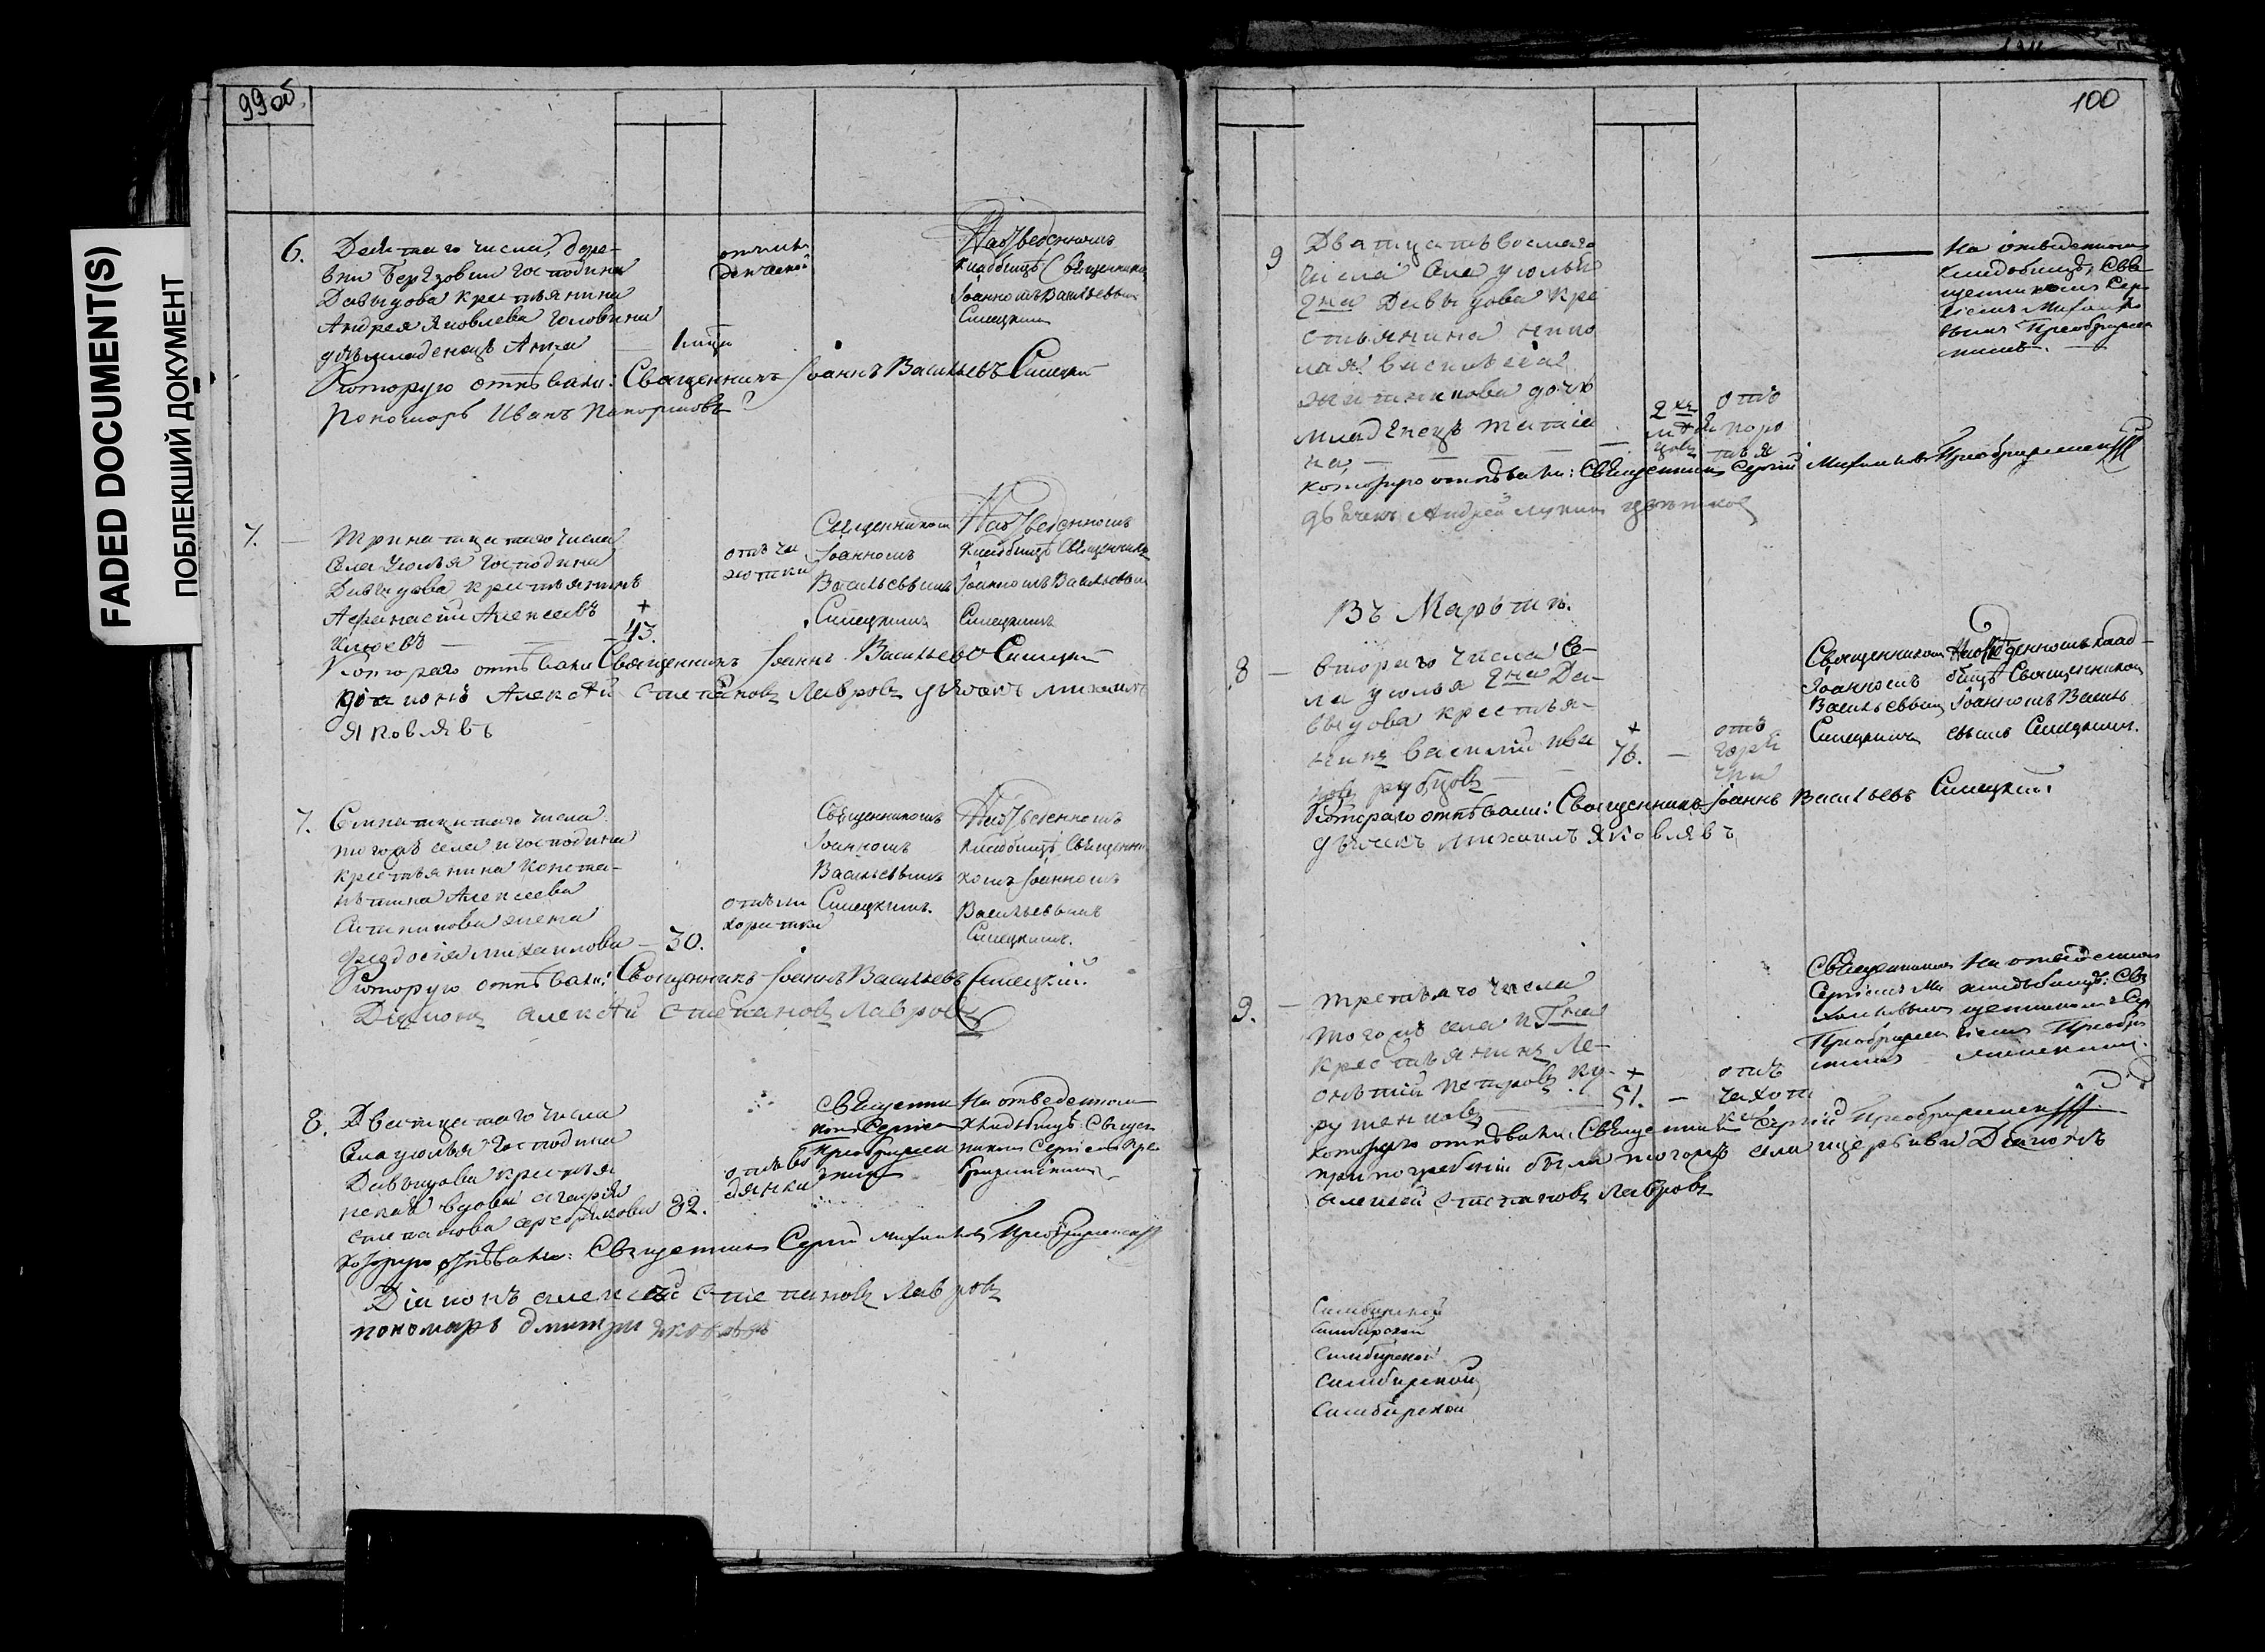 99 об
FADED DOCUMENT(S)
ПОБЛЕКШИЙ ДОКУМЕНТ
6.
числа, дере-
вни Берѣзовки Господина
Давыдова крестьянина
Андрея Яковлева Головина
дочь младенецъ Анна
младенческой
На отведенномъ
кладбищѣ Священникомъ
Iоанномъ Васильевымъ
Синецкимъ
Которую отпѣвали: Священникъ Iоаннъ Васильевъ Синецкий
Пономарь Иванъ
7.
Тринатцатаго числа
села Уголья Господина
Давыдова крестьянинъ
Афанасий Алексеевъ
Клюевъ
43.
отъ ча
хотки
Священникомъ
Iоанномъ
Васильевымъ
Синецкимъ
На отведенномъ
кладбищѣ Священникомъ
Iоанномъ Васильевымъ
Синецкимъ
Котораго отпѣвали Священникъ Iоаннъ Васильевъ Синецкий
Дiаконъ Алексѣй Степановъ Лавровъ дьячекъ Михаилъ
Яковлявъ
7.
Семнатцатаго числа
тогожъ села и господина
крестьянина Конста-
нтина Алексеева
жена
Феодосiя Михаилова
30.
отъ ли
хоратки
Священникомъ
Iоанномъ
Васильевымъ
Синецкимъ.
На отведенномъ
кладбищѣ Священни
комъ Iоанномъ
Васильевымъ
Синецкимъ.
Которую отпѣвали: Священникъ Iоаннъ Васильевъ Синецкiй.
Дiаконъ Алексѣй Степановъ Лавровъ
8.
Дватцатаго числа
села Уголья Господина
Давыдова крестья
нская вдова Агафiя
Степанова
82.
отъ во
дянки
Священни
комъ Сергiем
Преображен
На отведенном
кладбищѣ: Священ
никомъ Сергiемъ Пре
ображенскимъ
Которую отпѣвали: Священникъ Сергiй Михайловъ Преображенскiй
Дiаконъ Алексей Степановъ Лавровъ
пономарь Дмитри
100
9
Дватцать восмаго
числа села Уголья
Гна Давыдова кре
стьянина Нико
лая Васильева
дочь
младѣнецъ Татiа
на
2хъ
отъ
На отведенномъ
кладбищѣ, Свя
щенникомъ Сер
гiемъ Михайло
вымъ Преображен
Которую отпѣвали: Священникъ Сергiй Михайловъ Преображенскiй
дьячекъ Андрей Лукинъ
Въ Мартѣ.
8
втораго числа се-
ла Уголья Гна Да-
выдова крестья-
нинъ Василiй Ива
новъ Рубцовъ
76.
отъ
горя
чки
Священникомъ
Iоанномъ
Васильевымъ
Синецкимъ
На отведенномъ клад-
бищѣ Священникомъ
Iоанномъ Василь
евымъ Синецкимъ.
Котораго отпѣвали: Священникъ Iоаннъ Васильевъ Синецкий.
дьячекъ Михаилъ Яковлявъ
9.
третьяго числа
тогожъ села и Гна
крестьянинъ Ле-
онтий Петровъ
51.
отъ
чахот
ки
Священникомъ
Сергiемъ Ми
хайловымъ
Преображен
На отведенномъ
кладбищѣ: Свя
щенникомъ Сер
гiемъ Преобра
женскимъ.
Котораго отпѣвали: Священникъ Сергiй Преображенскiй
при погребенiи были тогожъ села церкви Дiаконъ
Алексей Степановъ Лавровъ
Симбирской
Симбирской
Симбирской
Симбирской
Симбирской